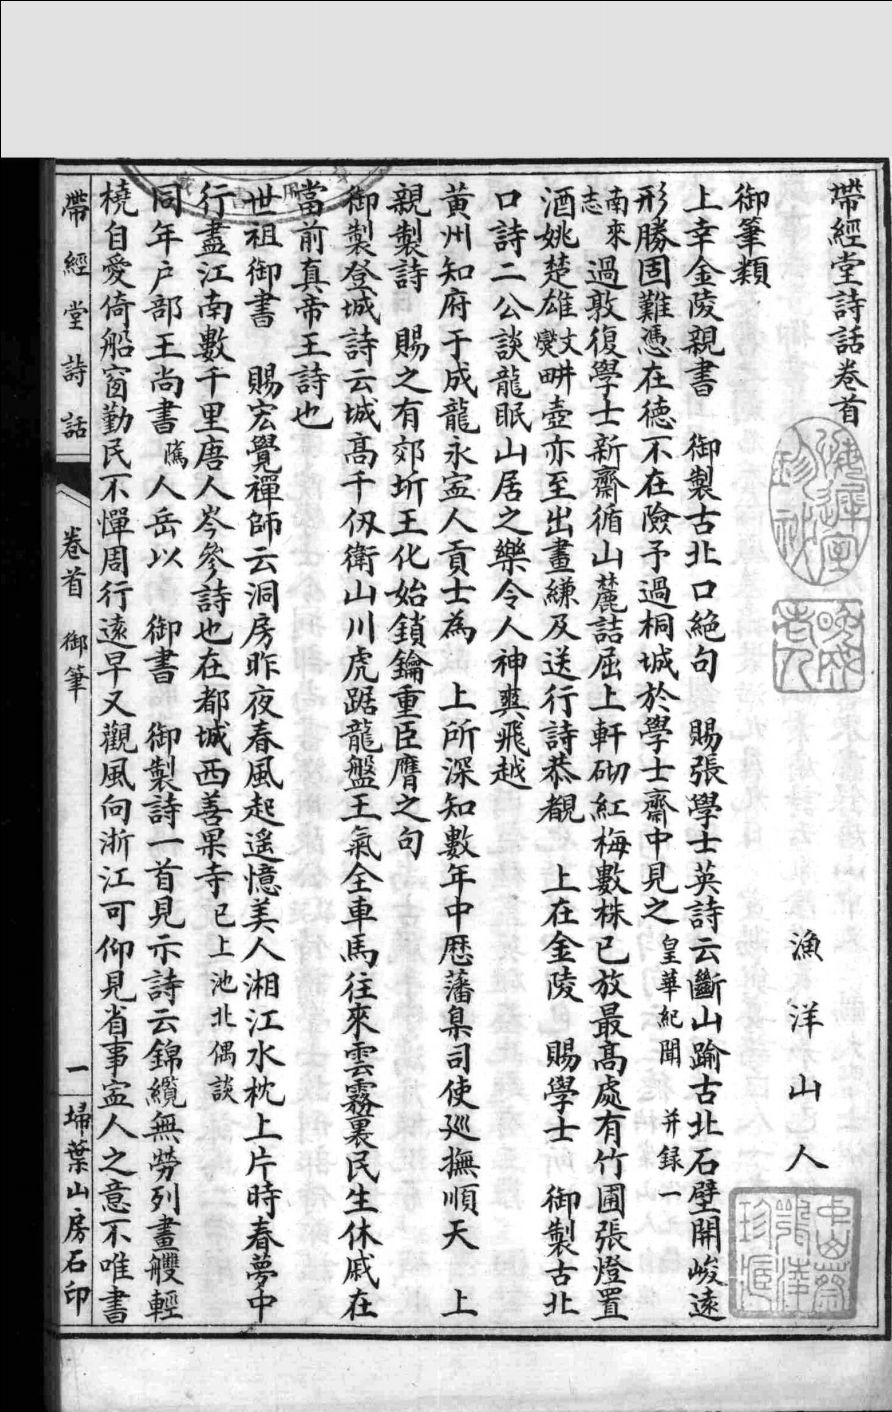 帶經堂詩話卷首
漁洋山人
御筆類
上幸金陵親書 御製古北口絕句 賜張學士英詩云斷山踰古北石壁開峻遠
形勝固難憑在德不在險予過桐城於學士齋中見之皇華紀聞 并錄一
南來志過敦復學士新齋循山麓詰屈上軒砌紅梅數株已放最高處有竹圃張燈置
酒姚楚雄文燮畊壺亦至出畫縑及送行詩恭覩 上在金陵 賜學士 御製古北
口詩二公談龍眠山居之樂令人神與飛越
黃州知府于成龍永寍人貢士為 上所深知數年中歴藩臬司使廵撫順天 上
親製詩 賜之有郊圻王化始鎖鑰重臣膺之句
御製登城詩云城高千仭衛山川虎踞龍盤王氣全車馬往來雲霧裏民生休戚在
當前真帝王詩也
世祖御書 賜宏覺禪師云洞房昨夜春風起遙憶美人湘江水枕上片時春夢中
行盡江南數千里唐人岑參詩也在都城西善果寺已上池北偶談
同年户部王尚書隲人岳以 御書 御製詩一首見示詩云錦纜無勞列畫艭輕
橈自愛倚船窗勤民不憚周行遠早又觀風向浙江可仰見省事寍人之意不唯書
帶經堂詩話 卷首 御筆 一 埽葉山房石印